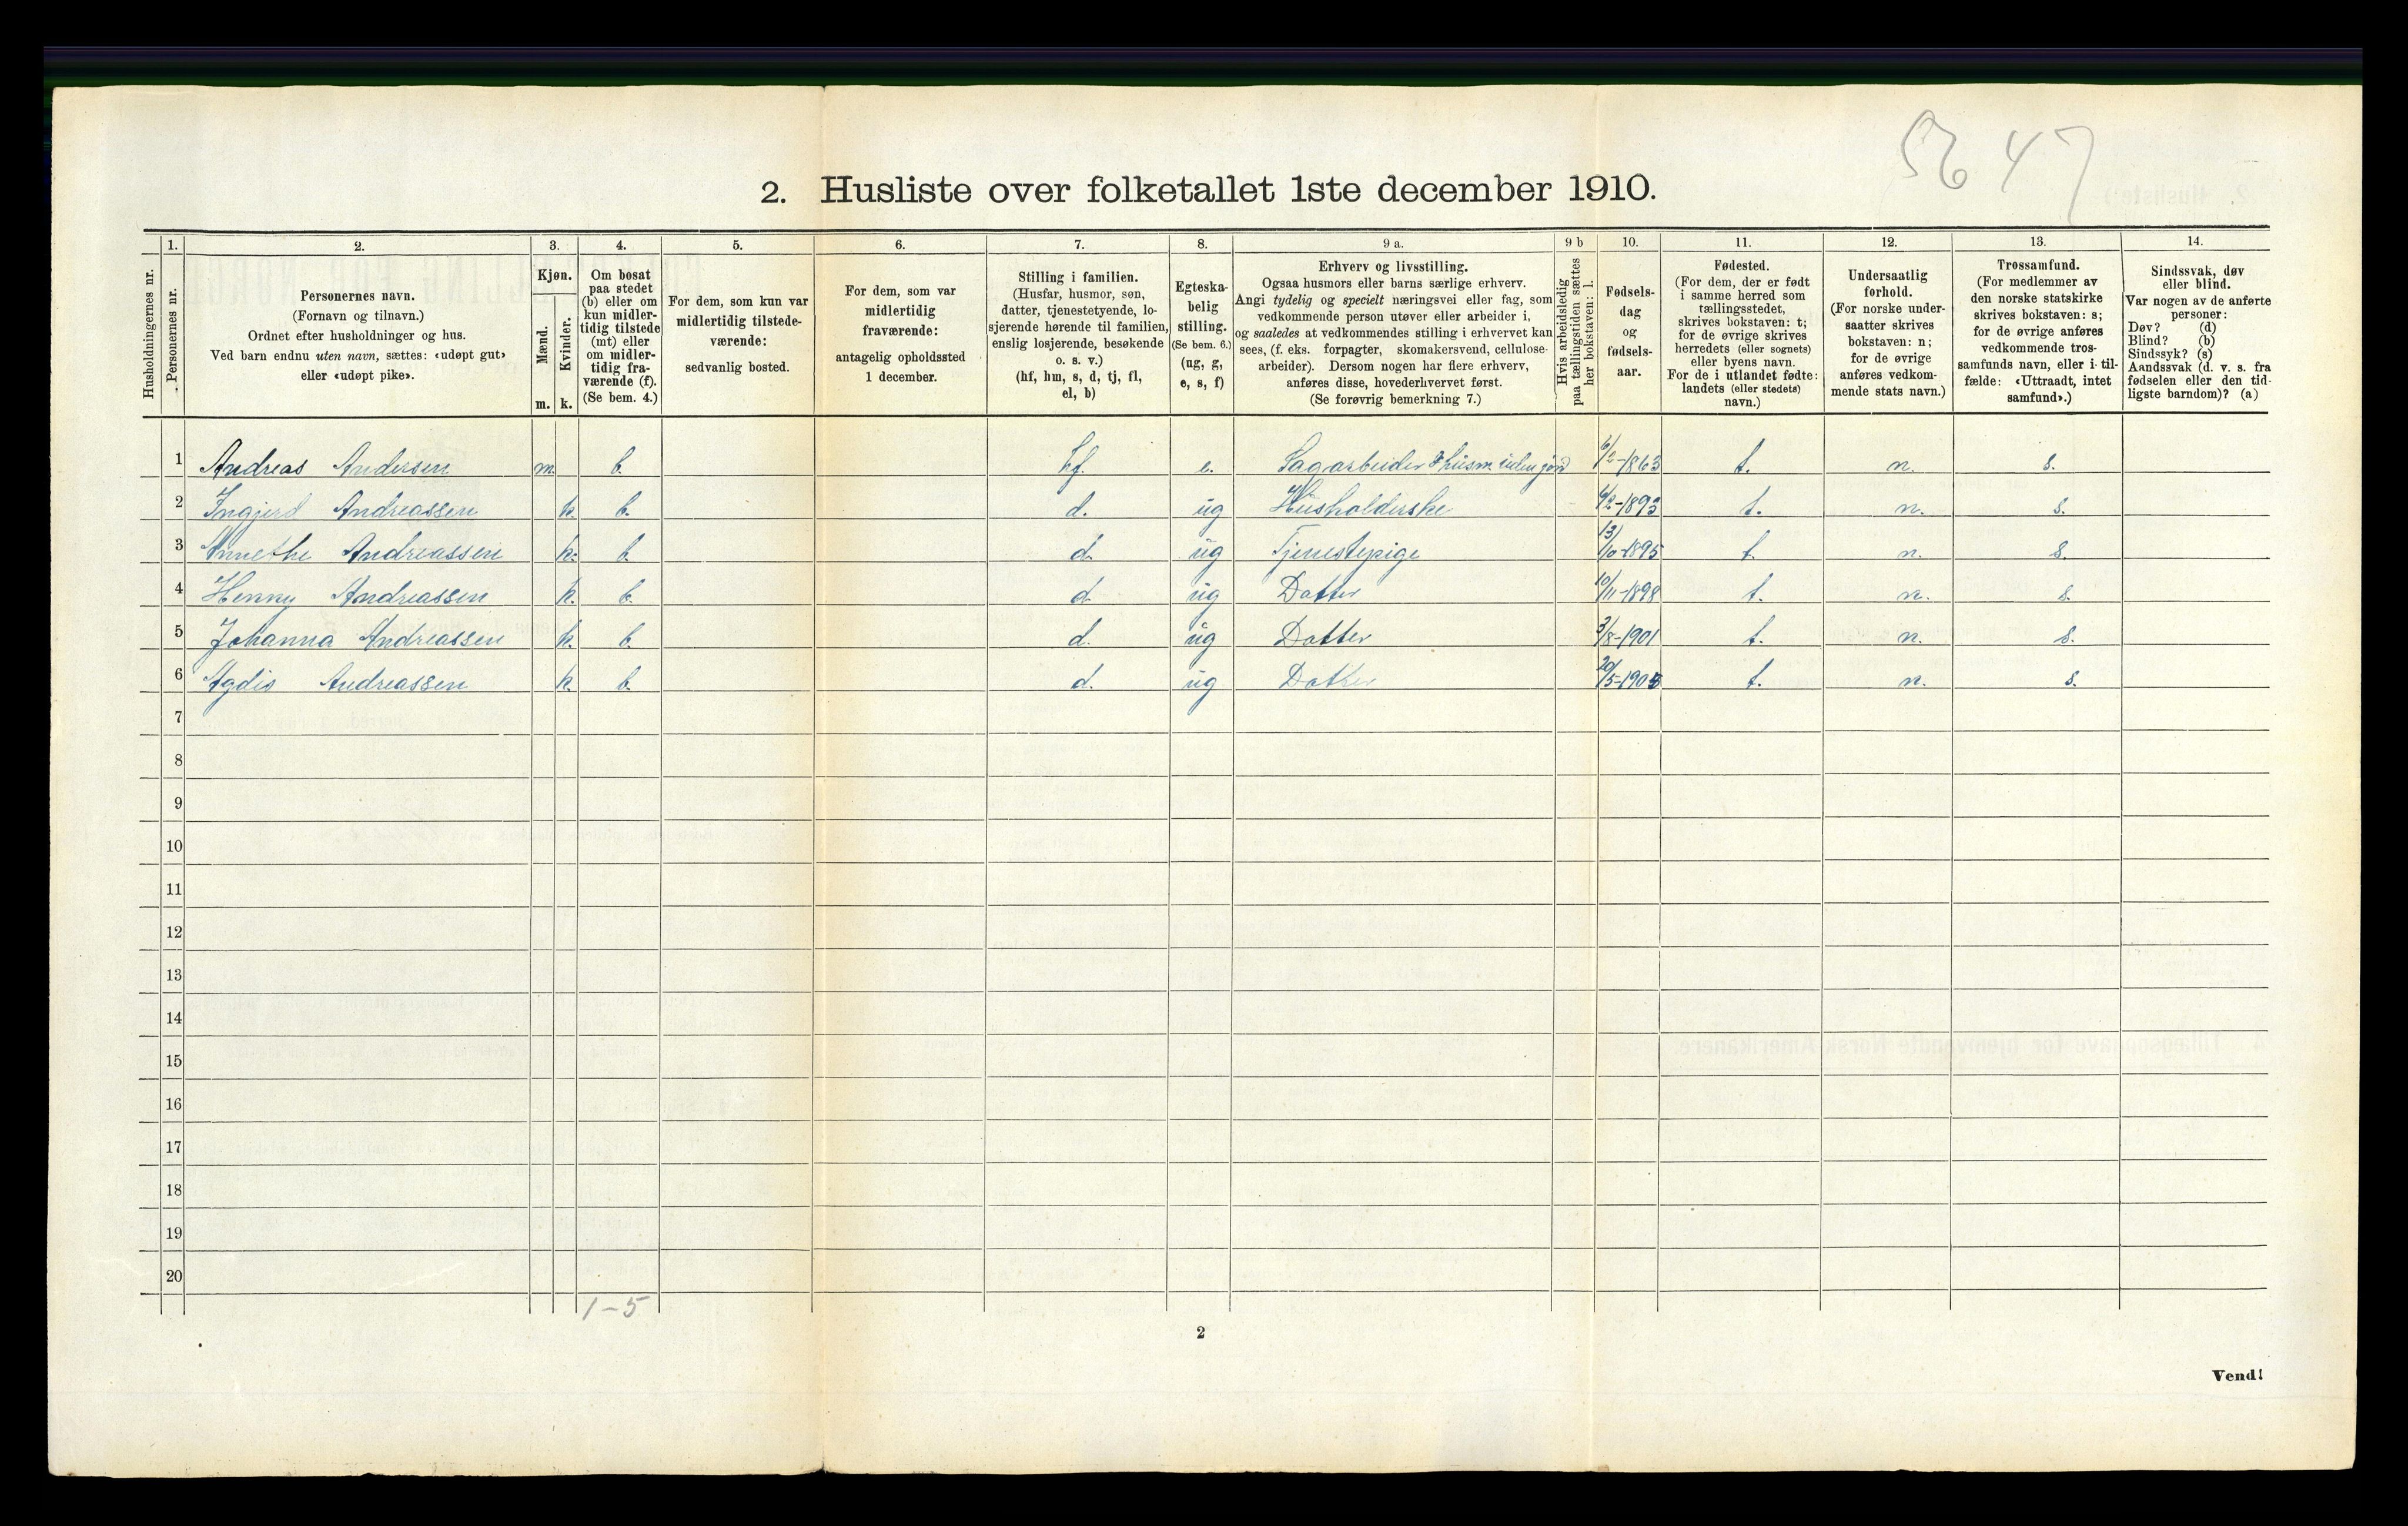 5647
2. Husliste over folketallet 1ste december 1910.
Husholdningernes nr.
1.
Personernes nr.
2.
Personernes navn.
(Fornavn og tilnavn.)
Ordnet efter husholdninger og hus.
Ved barn endnu uten navn, sættes: «udøpt gut»
eller «udøpt pike».
3.
Kjøn.
Mænd.
m.
Kvinder.
k.
4.
Om bosat
paa stedet
(b) eller om
kun midler-
tidig tilstede
(mt) eller
om midler-
tidig fra-
værende (f).
(Se bem. 4.)
5.
For dem, som kun var
midlertidig tilstede-
værende:
sedvanlig bosted.
6.
For dem, som var
midlertidig
fraværende:
antagelig opholdssted
1 december.
7.
Stilling i familien.
(Husfar, husmor, søn,
datter, tjenestetyende, lo-
sjerende hørende til familien,
enslig losjerende, besøkende
o. s. v.)
(hf, hm, s, d, tj, fl,
el, b)
8.
Egteska-
belig
stilling.
(Se bem. 6.)
(ug, g,
e, s, f)
9 a.
Erhverv og livsstilling.
Ogsaa husmors eller barns særlige erhverv.
Angi tydelig og specielt næringsvei eller fag, som
vedkommende person utøver eller arbeider i,
og saaledes at vedkommendes stilling i erhvervet kan
sees, (f. eks. forpagter, skomakersvend, cellulose-
arbeider). Dersom nogen har flere erhverv,
anføres disse, hovederhvervet først.
(Se forøvrig bemerkning 7.)
9 b
Hvis arbeidsledig
paa tællingstiden sættes
her bokstaven: l.
10.
Fødsels-
dag
og
fødsels-
aar.
11.
Fødested.
(For dem, der er født
i samme herred som
tællingsstedet,
skrives bokstaven: t;
for de øvrige skrives
herredets (eller sognets)
eller byens navn.
For de i utlandet fødte:
landets (eller stedets)
navn.)
12.
Undersaatlig
forhold.
(For norske under-
saatter skrives
bokstaven: n;
for de øvrige
anføres vedkom-
mende stats navn.)
13.
Trossamfund.
(For medlemmer av
den norske statskirke
skrives bokstaven: s;
for de øvrige anføres
vedkommende tros-
samfunds navn, eller i til-
fælde: «Uttraadt, intet
samfund».)
14.
Sindssvak, døv
eller blind.
Var nogen av de anførte
personer:
Døv? (d)
Blind? (b)
Sindssyk? (s)
Aandssvak (d. v. s. fra
fødselen eller den tid-
ligste barndom)? (a)
1 Andreas Andersen m. b. hf. e. Sagarbeider & husm uden jord 6/2-1863 t. n. s.
2 Ingjerd Andreassen k. b. d. ug Husholderske 6/2-1893 t. n. s.
3 Annethe Andreassen k. b. d. ug Tjenestepige 13/10-1895 t. n. s.
4 Henny Andreassen k. b. d. ug Datter 10/11-1898 t. n. s.
5 Johanna Andreassen k. b. d. ug Datter 3/8-1901 t. n. s.
6 Agdis Andreassen k. b. d. ug Datter 20/5- t. n. s.
7
8
9
10
11
12
13
14
15
16
17
18
19
20
1-5
2
Vend!